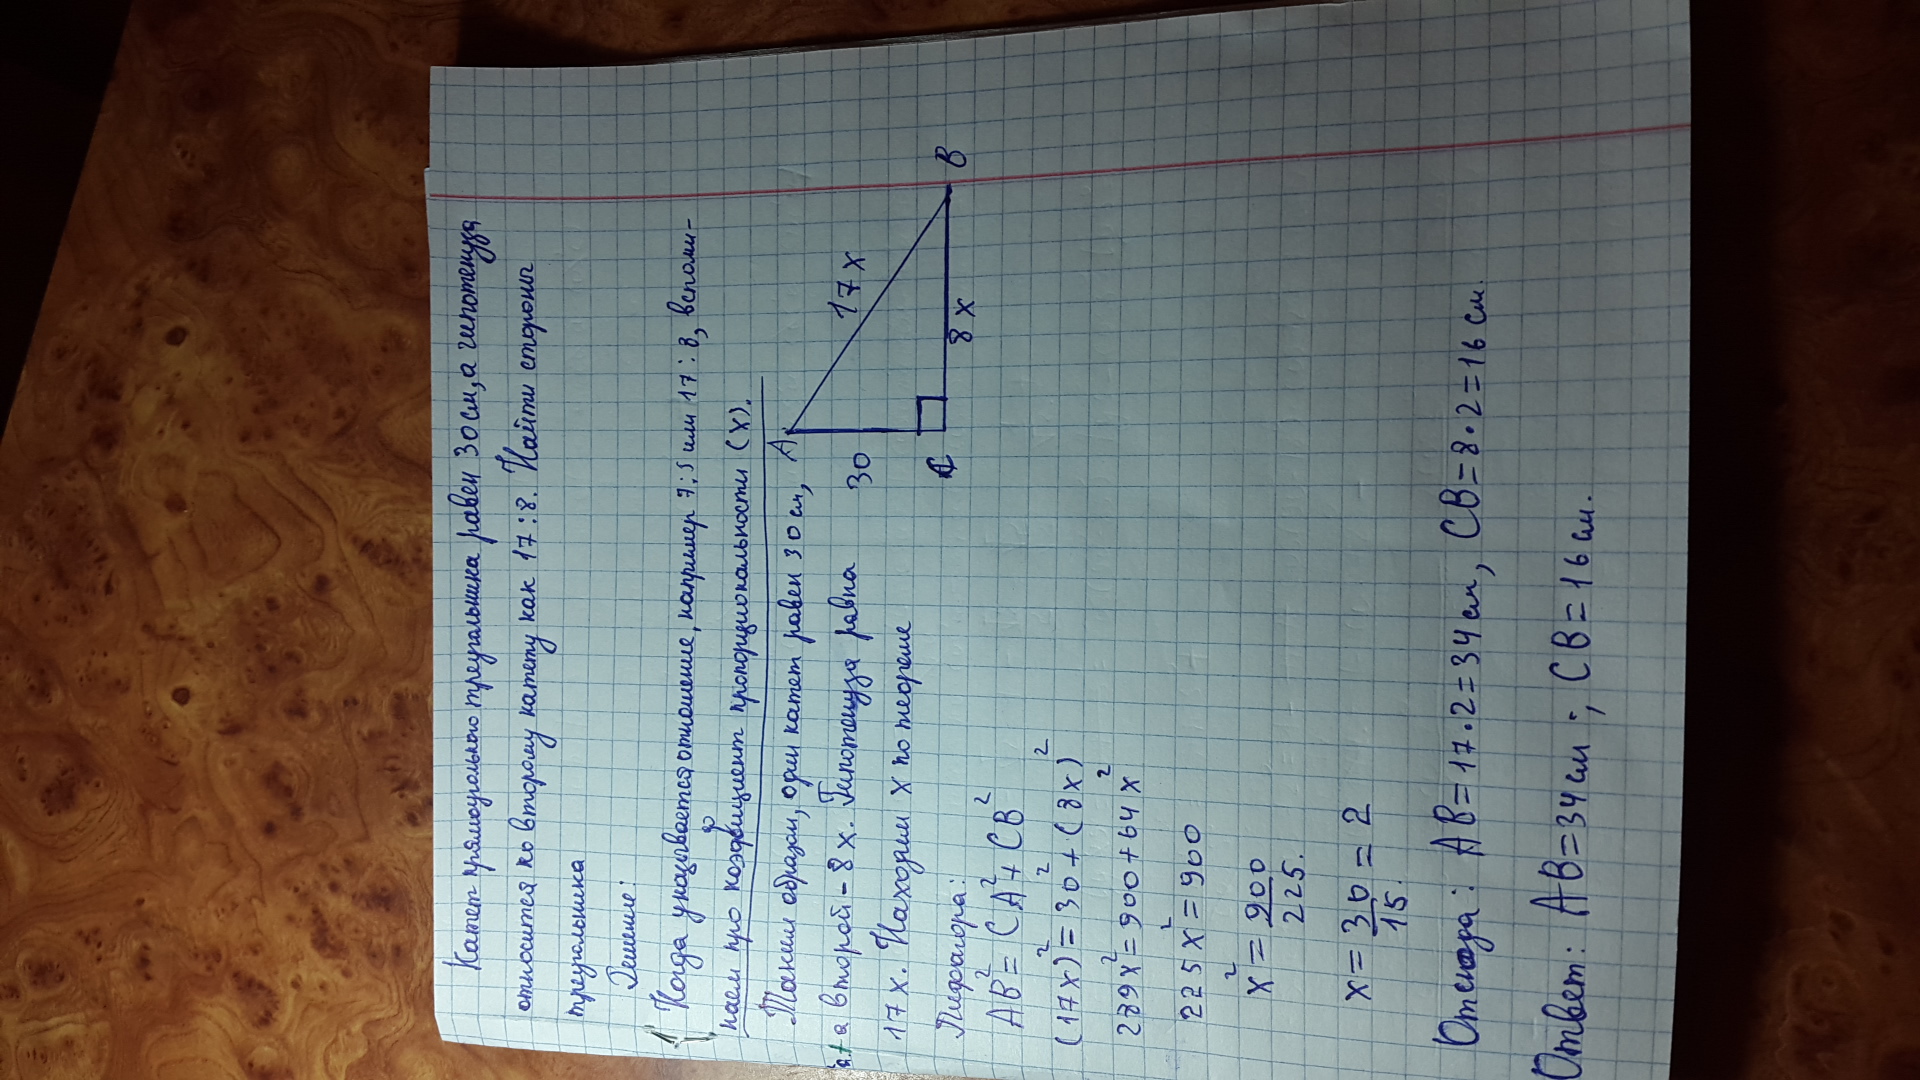 Катет прямоугольного треугольника равен 30 см, а гипотенуза
относится ко второму катету как 17:8. Найти стороны
треугольника
Решение:
Когда указывается отношение, например 7:5 или 17:8, вспоми-
наем про коэффициент пропорциональности (х).
Таким образом, один катет равен 30 см,
а второй - 8х. Гипотенуза равна
17х. Находим х по теореме
Пифагора:
AB²=CA²+CB²
(17x)²=30²+(8x)²
289x²=900+64x²
225x²=900
x²=900/225.
x=30/15.=2
Отсюда: AB=17·2=34см, CB=8·2=16см.
Ответ: AB=34см; CB=16см.
A
30
17x
C
8x
B